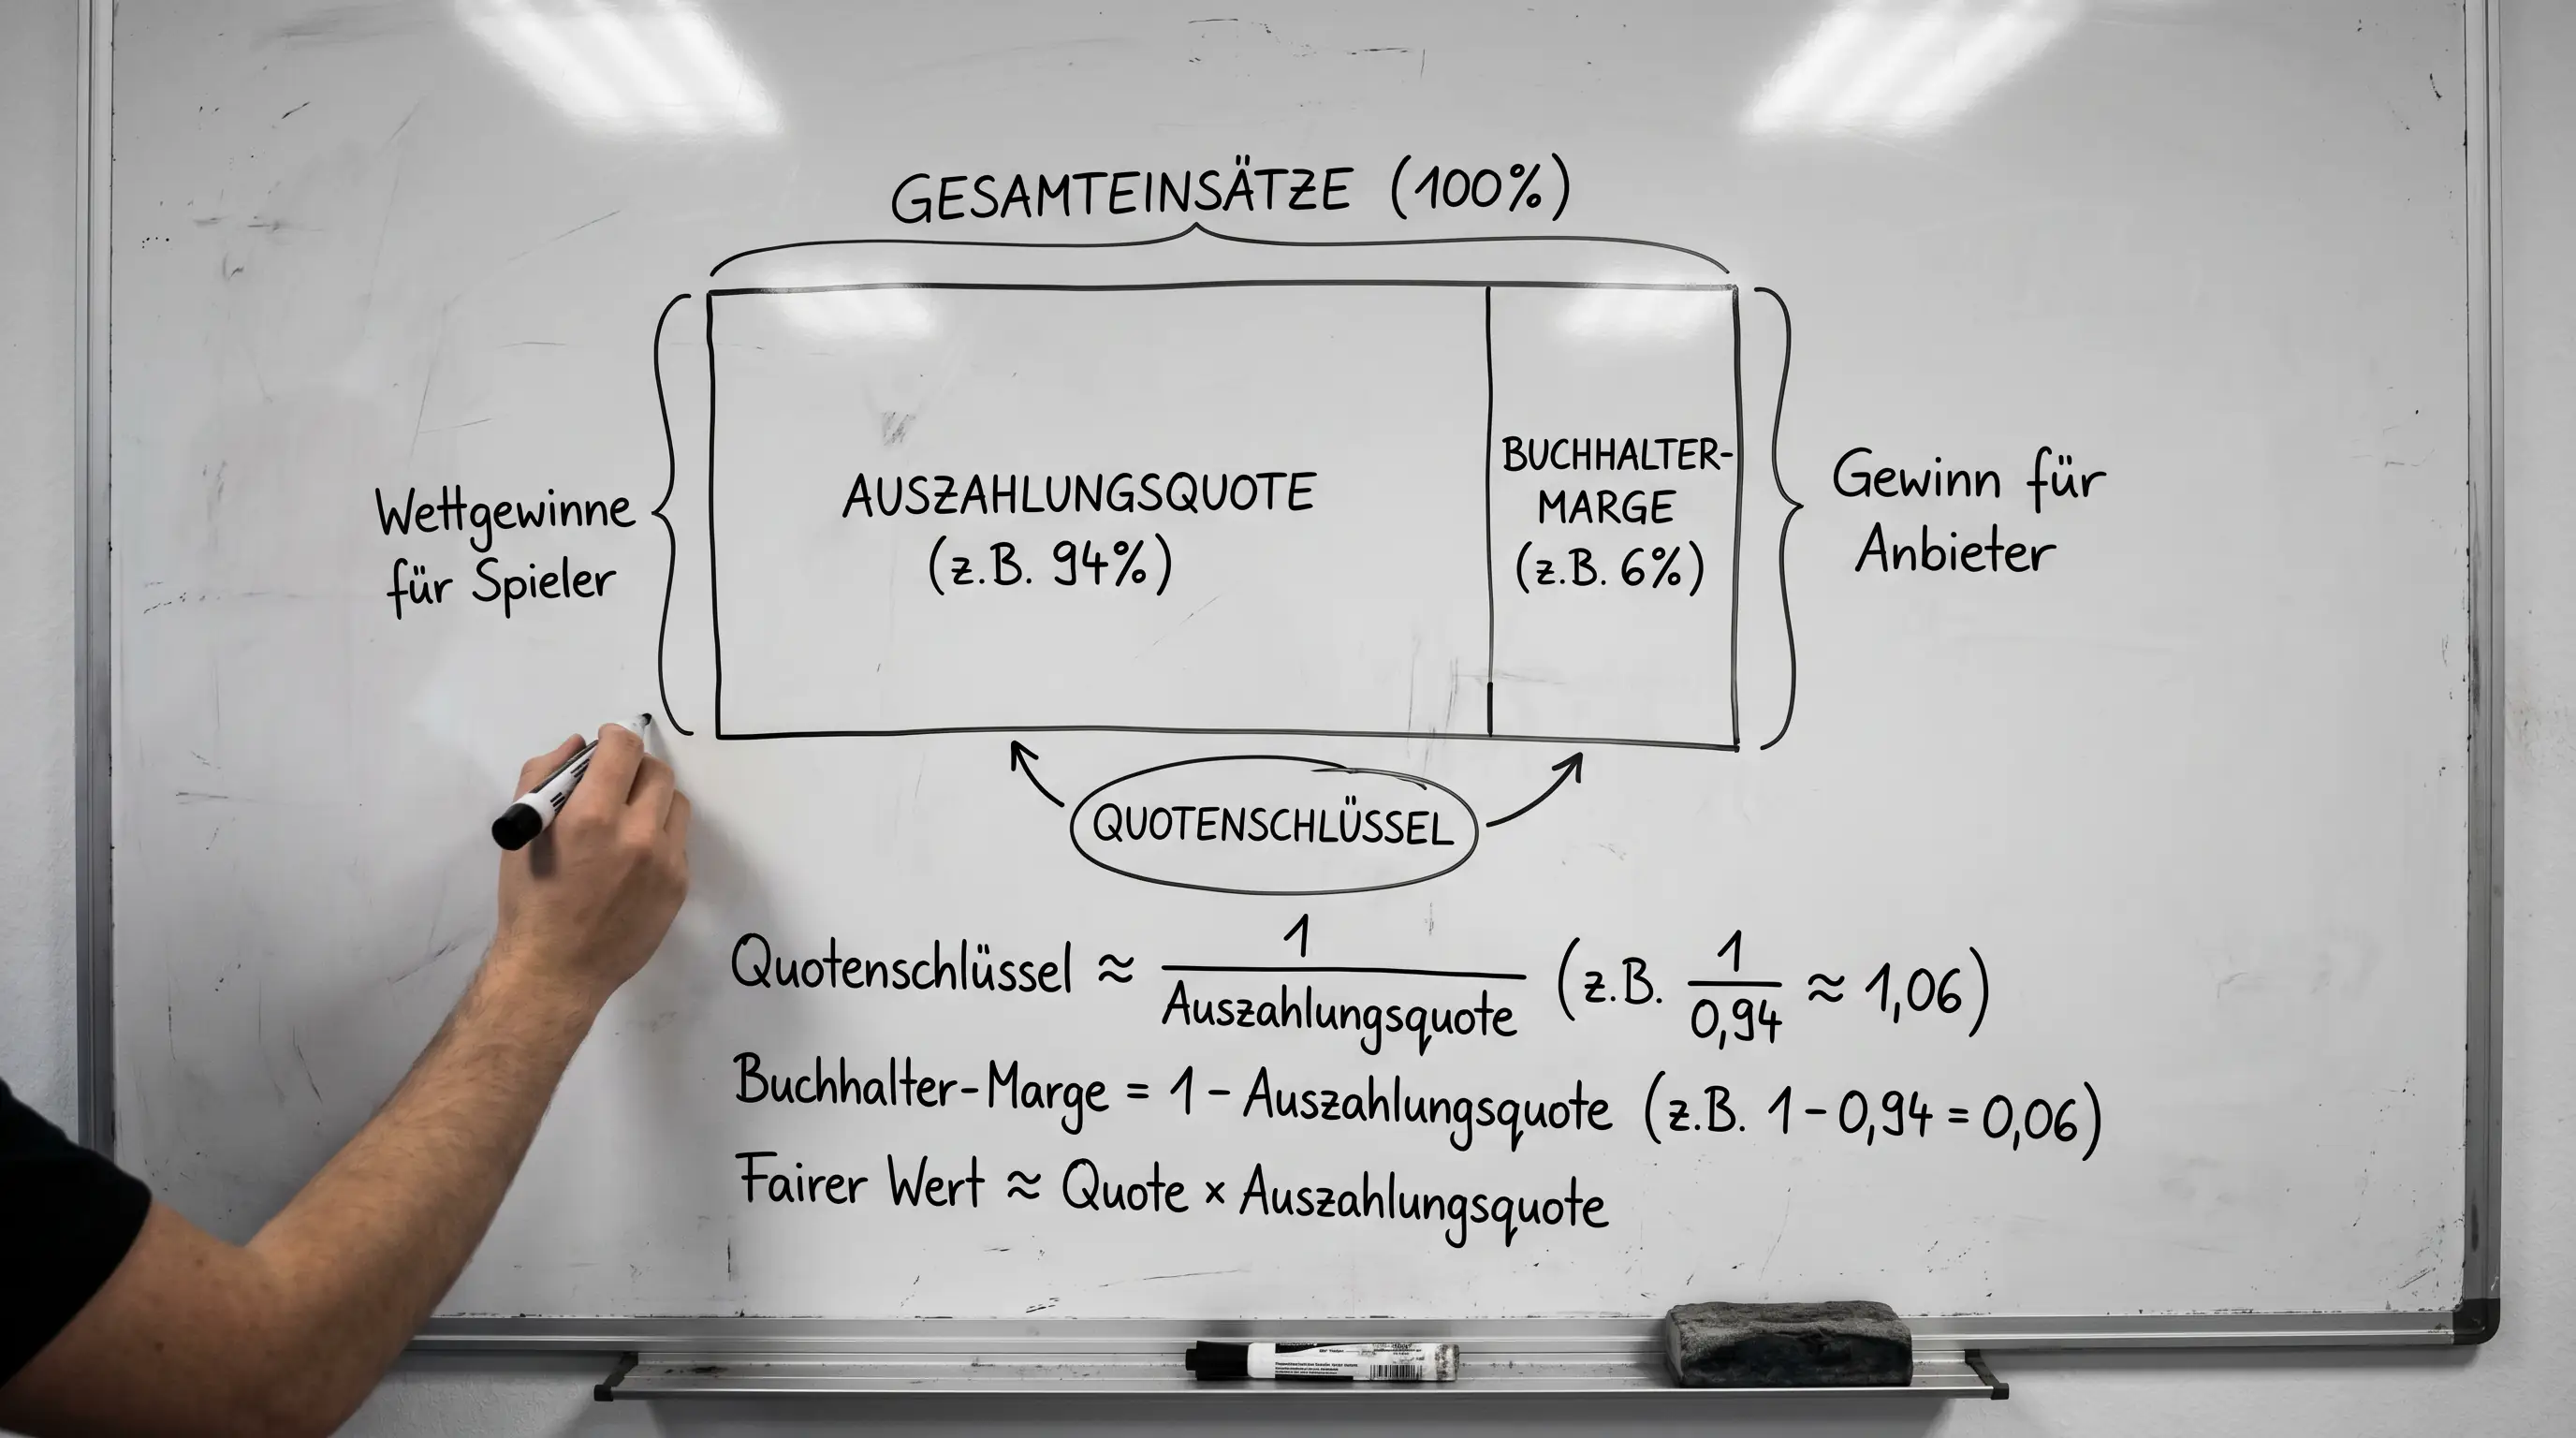 GESAMTEINSÄTZE (100%)
Wettgewinne
für Spieler
AUSZAHLUNGSQUOTE
(z.B. 94%)
BUCHHALTER-
MARGE
(z.B. 6%)
Gewinn für
Anbieter
QUOTENSCHLÜSSEL
Quotenschlüssel ≈ 1 / Auszahlungsquote (z.B. 1 / 0,94 ≈ 1,06)
Buchhalter-Marge = 1 – Auszahlungsquote (z.B. 1 – 0,94 = 0,06)
Fairer Wert ≈ Quote × Auszahlungsquote